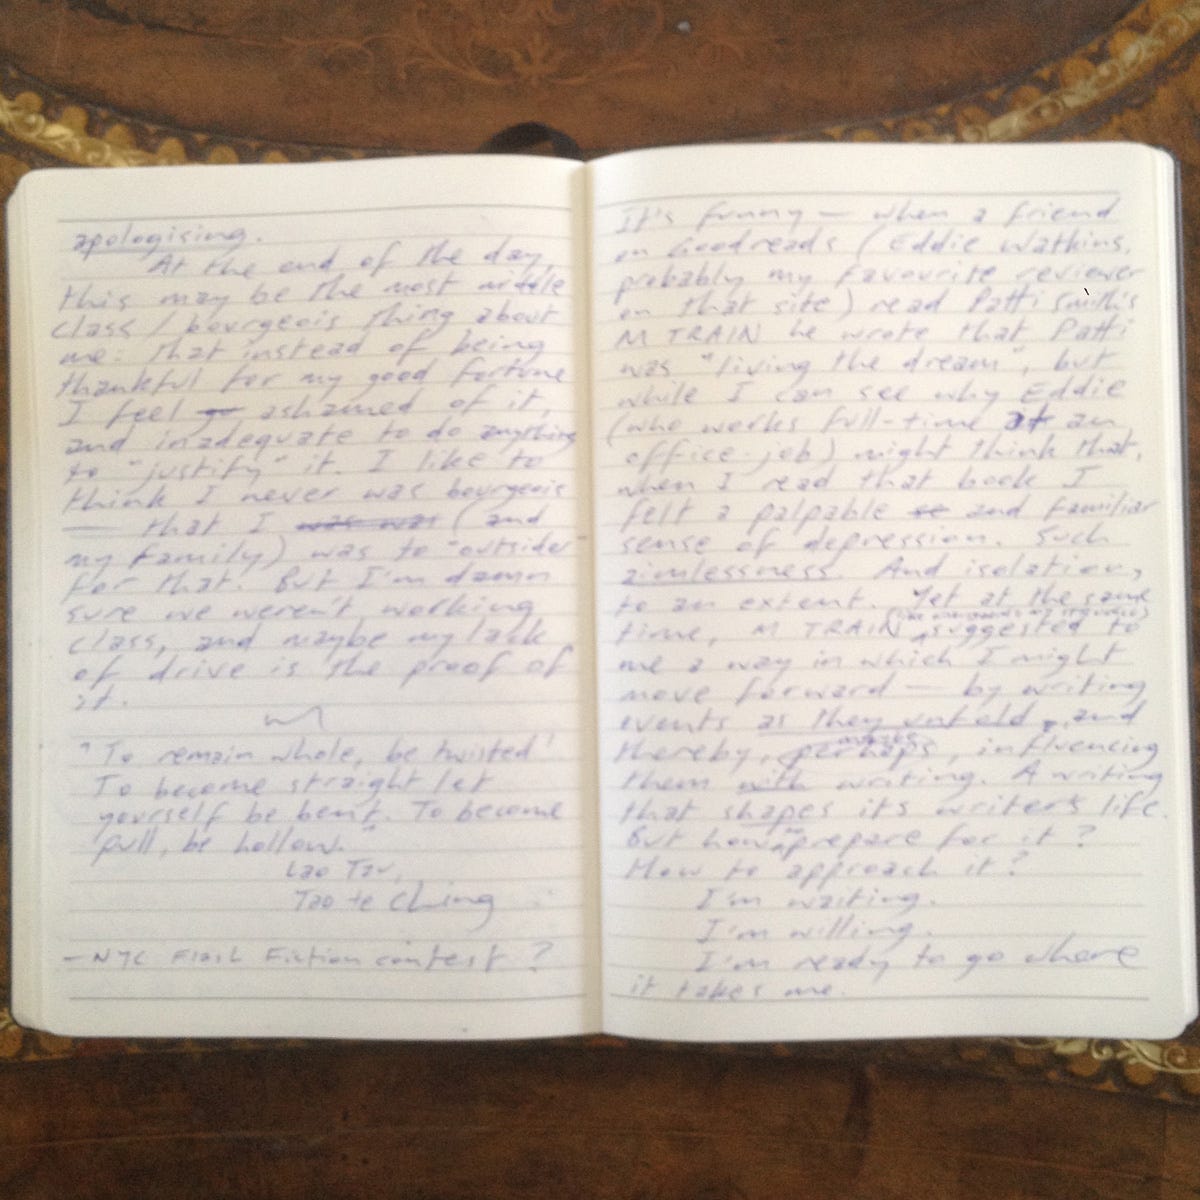 apologising.
At the end of the day,
this may be the most middle
class / bourgeois thing about
me: that instead of being
thankful for my good fortune
I feel ashamed of it,
and inadequate to do anything
to "justify" it. I like to
think I never was bourgeois
— that I was was (and
my family) was to "outsider"
for that. But I'm damn
sure we weren't working
class, and maybe my lack
of drive is the proof of
it.
"To remain whole, be twisted!
To become straight let
yourself be bent. To become
full, be hollow."
Lao Tzu,
Tao te Ching
- NYC Flash Fiction contest?
It's funny — when a friend
on Goodreads (Eddie Watkins,
probably my favourite reviewer
on that site) read Patti Smith's
M TRAIN he wrote that Patti
was "living the dream", but
while I can see why Eddie
(who works full-time at an
office-job) might think that,
when I read that book I
felt a palpable and familiar
sense of depression. Such
aimlessness. And isolation,
to an extent. Yet at the same
time, M TRAIN suggested to
me a way in which I might
move forward — by writing
events as they unfold, and
thereby, perhaps maybe, influencing
them with writing. A writing
that shapes its writer's life.
But how to prepare for it?
How to approach it?
I'm waiting.
I'm willing.
I'm ready to go where
it takes me.